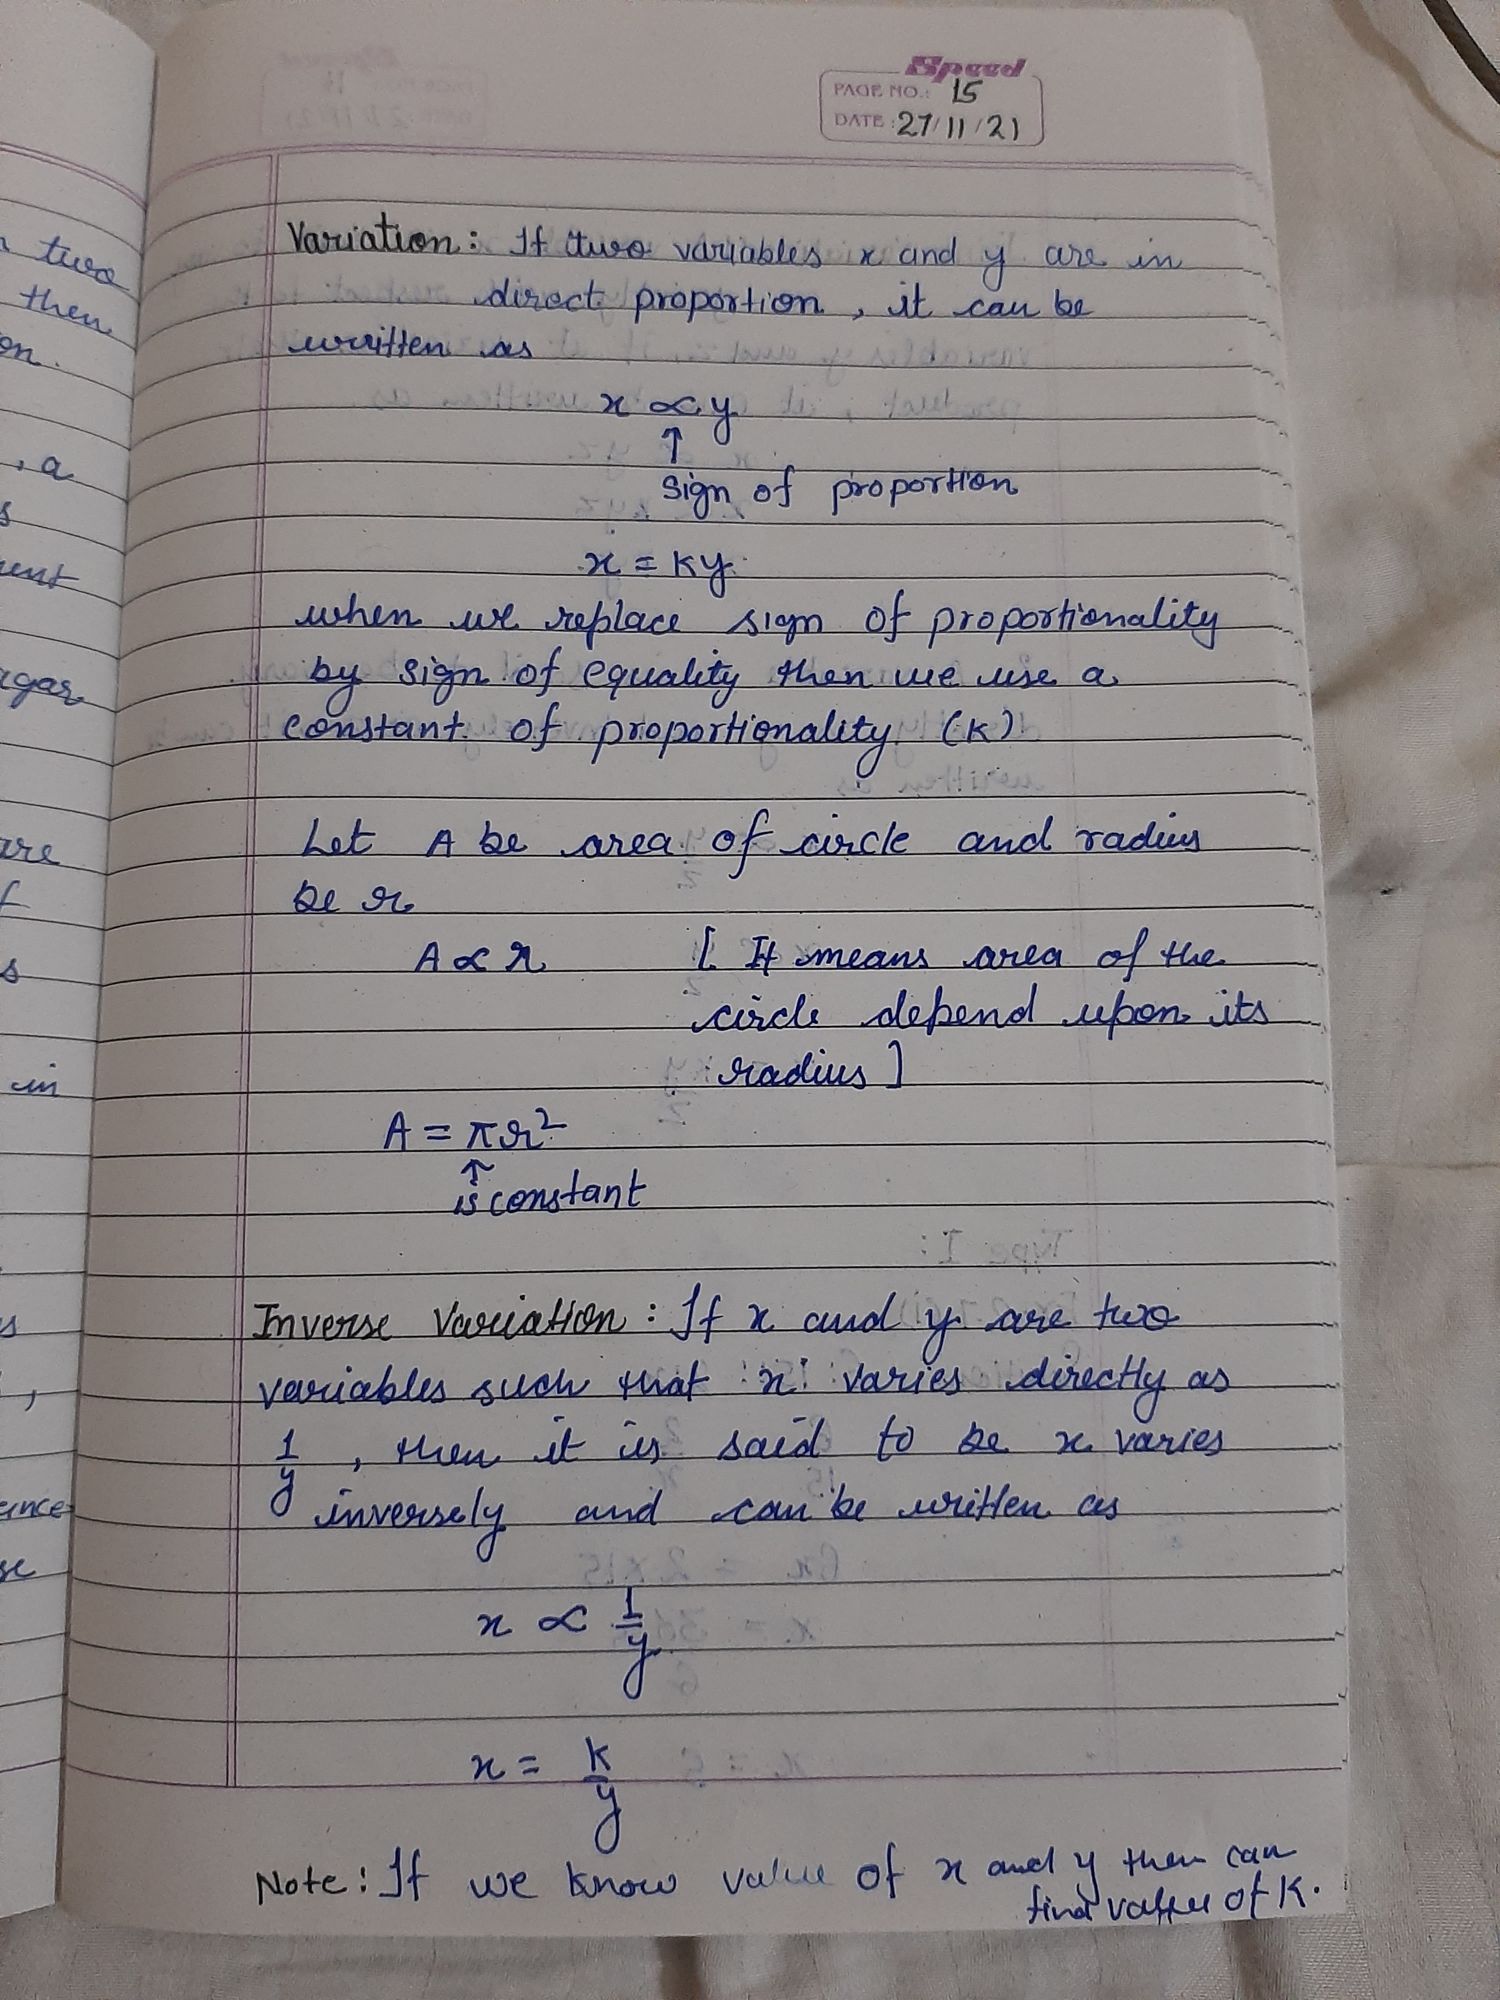 Speed
PAGE NO.: 15
DATE: 27/11/21
two
then
on.
, a
ugar
are
in
Variation: If two variables x and y are in
direct proportion, it can be
written as
x ∝ y
↑
sign of proportion
x = ky
when we replace sign of proportionality
by sign of equality then we use a
constant of proportionality (K)
Let A be area of circle and radius
be r
A ∝ r [It means area of the
circle depend upon its
radius]
A = πr²
↑
is constant
Inverse Variation: If x and y are two
variables such that x varies directly as
1/y, then it is said to be x varies
inversely and can be written as
x ∝ 1/y
x = k/y
Note: If we know value of x and y then can
find value of K.